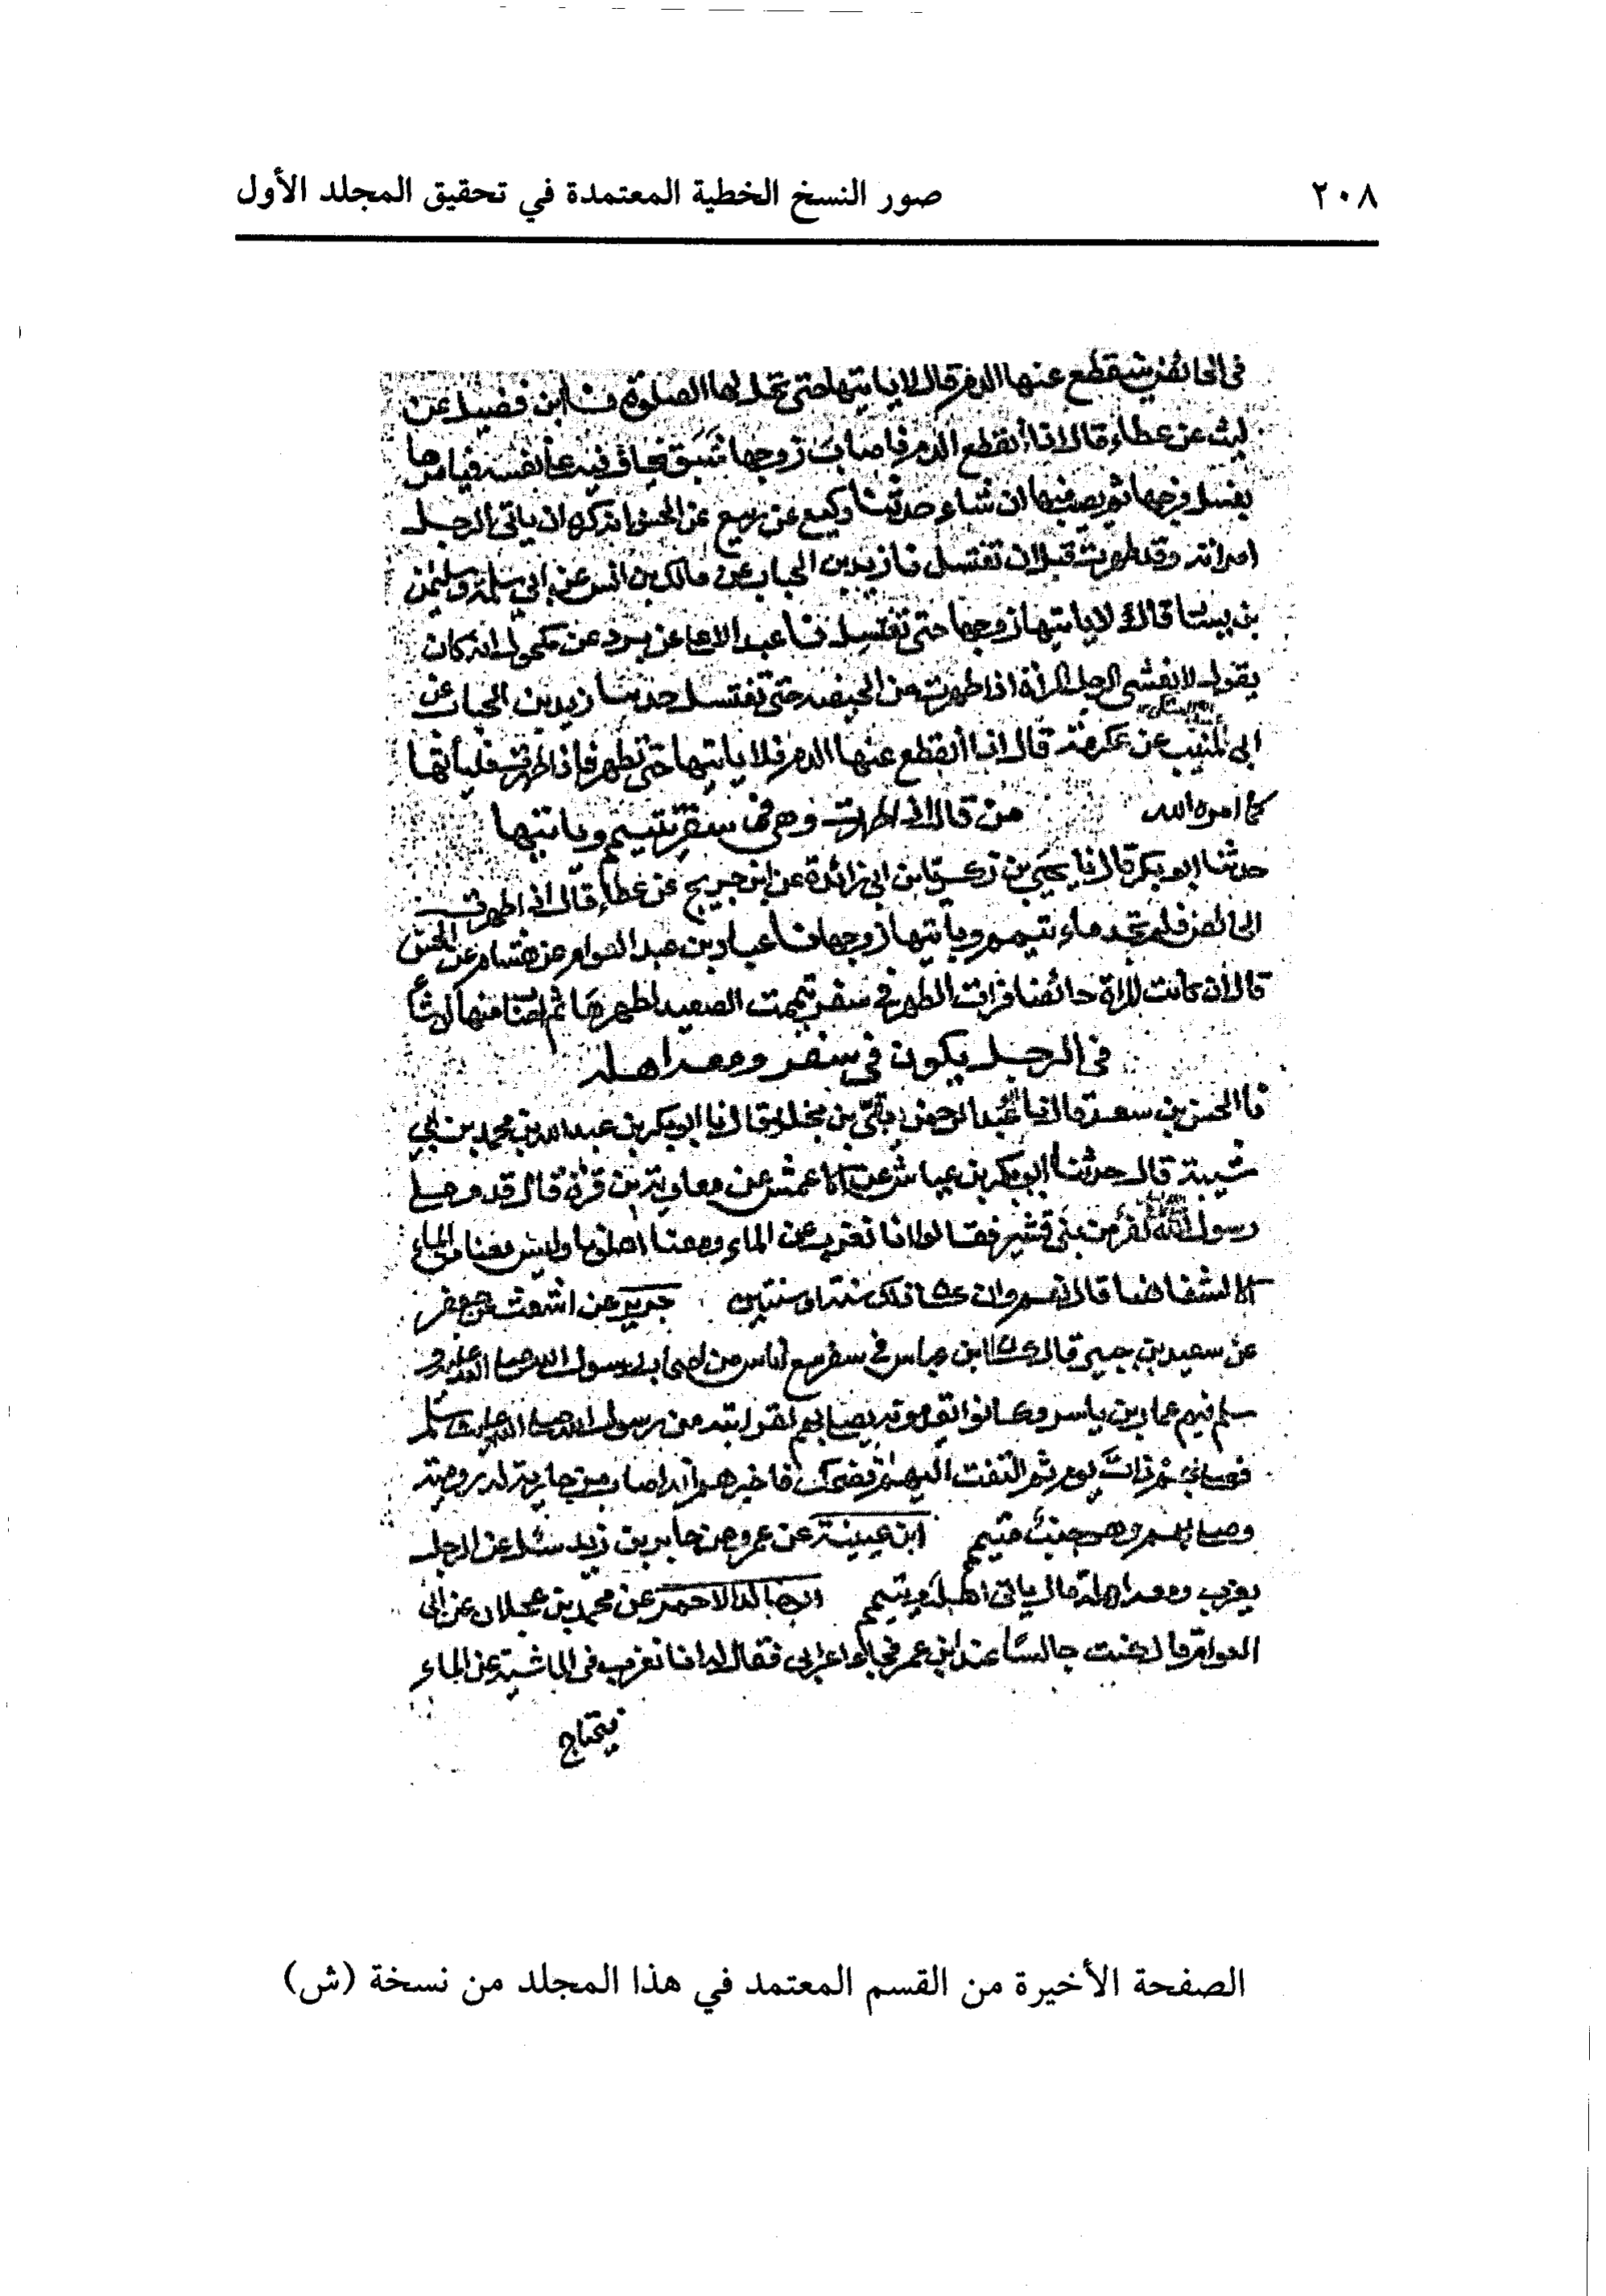 ٢٠٨ صور النسخ الخطية المعتمدة في تحقيق المجلد الأول
في الحائض ينقطع عنها الدم قال لا ياتيها حتى تحل لها الصلوة نا ابن فضيل عن
ليث عن عطاء قال اذا انقطع الدم فاصاب زوجها شبق يخاف فيه على نفسه فيامرها
بغسل فرجها ثم يصيب منها ان شاء حدثنا وكيع عن ربيع عن الحسن انه كره ان ياتي الرجل
امراته وقد طهرت قبل ان تغتسل نا زيد بن الحباب عن مالك بن انس عن ابي سلمة وسليمن
بن يسار قالا لا ياتيها زوجها حتى تغتسل نا عبد الاعلى عن برد عن مكحول انه كان
يقول لا يغشى الرجل المراة اذا طهرت من الحيضه حتى تغتسل حدثنا زيد بن الحباب عن
ابي المنيب عن عكرمة قال اذا انقطع عنها الدم فلا ياتيها حتى تطهر فاذا طهرت فلياتها
كما امره الله من قال اذا طهرت وهي في سفر تتيمم وياتيها
حدثنا ابو بكر قال نا يحيى بن زكريا بن ابي زائدة عن ابن جريج عن عطاء قال اذا طهرت
الحائض فلم تجد ماء تتيمم وياتيها زوجها نا عباد بن عبد العوام عن هشام عن الحسن
قال ان كانت المراة حائضا فرات الطهر في سفر تيممت الصعيد لطهرها ثم اصاب منها ان شا
في الرجل يكون في سفر ومعه اهله
نا الحسن بن سعد قال نا ابو عبد الرحمن بقي بن مخلد قال نا ابو بكر بن عبد الله بن محمد بن ابي
شيبة قال حدثنا ابو بكر بن عياش عن الاعمش عن معاوية بن قرة قال قدم على
رسول الله نفر من بني قشير فقالوا انا نعزب عن الماء ومعنا اهلونا وليس معنا من الماء
الا لشفاهنا قال نعم وان كان ذلك سنة او سنتين جرير عن اشعث عن جعفر
عن سعيد بن جبير قال كان ابن عباس في سفر مع اناس من اصحاب رسول الله صلى الله عليه و
سلم فيهم عمار بن ياسر وكانوا يقدمونه يصلي بهم لقرابته من رسول الله صلى الله عليه وسلم
فصلى بهم ذات يوم ثم التفت اليهم فضحك فاخبرهم انه اصاب من جارية له رومية
وصلى بهم وهو جنب متيمم ابن عيينة عن عمرو عن جابر بن زيد سئل عن الرجل
يعزب ومعه اهله قال ياتي اهله ويتيمم ابو خالد الاحمر عن محمد بن عجلان عن ابي
العوام قال كنت جالسا عند ابن عمر فجاءه اعرابي فقال له انا نعزب في الماشية عن الماء
يحتاج
الصفحة الأخيرة من القسم المعتمد في هذا المجلد من نسخة (ش)